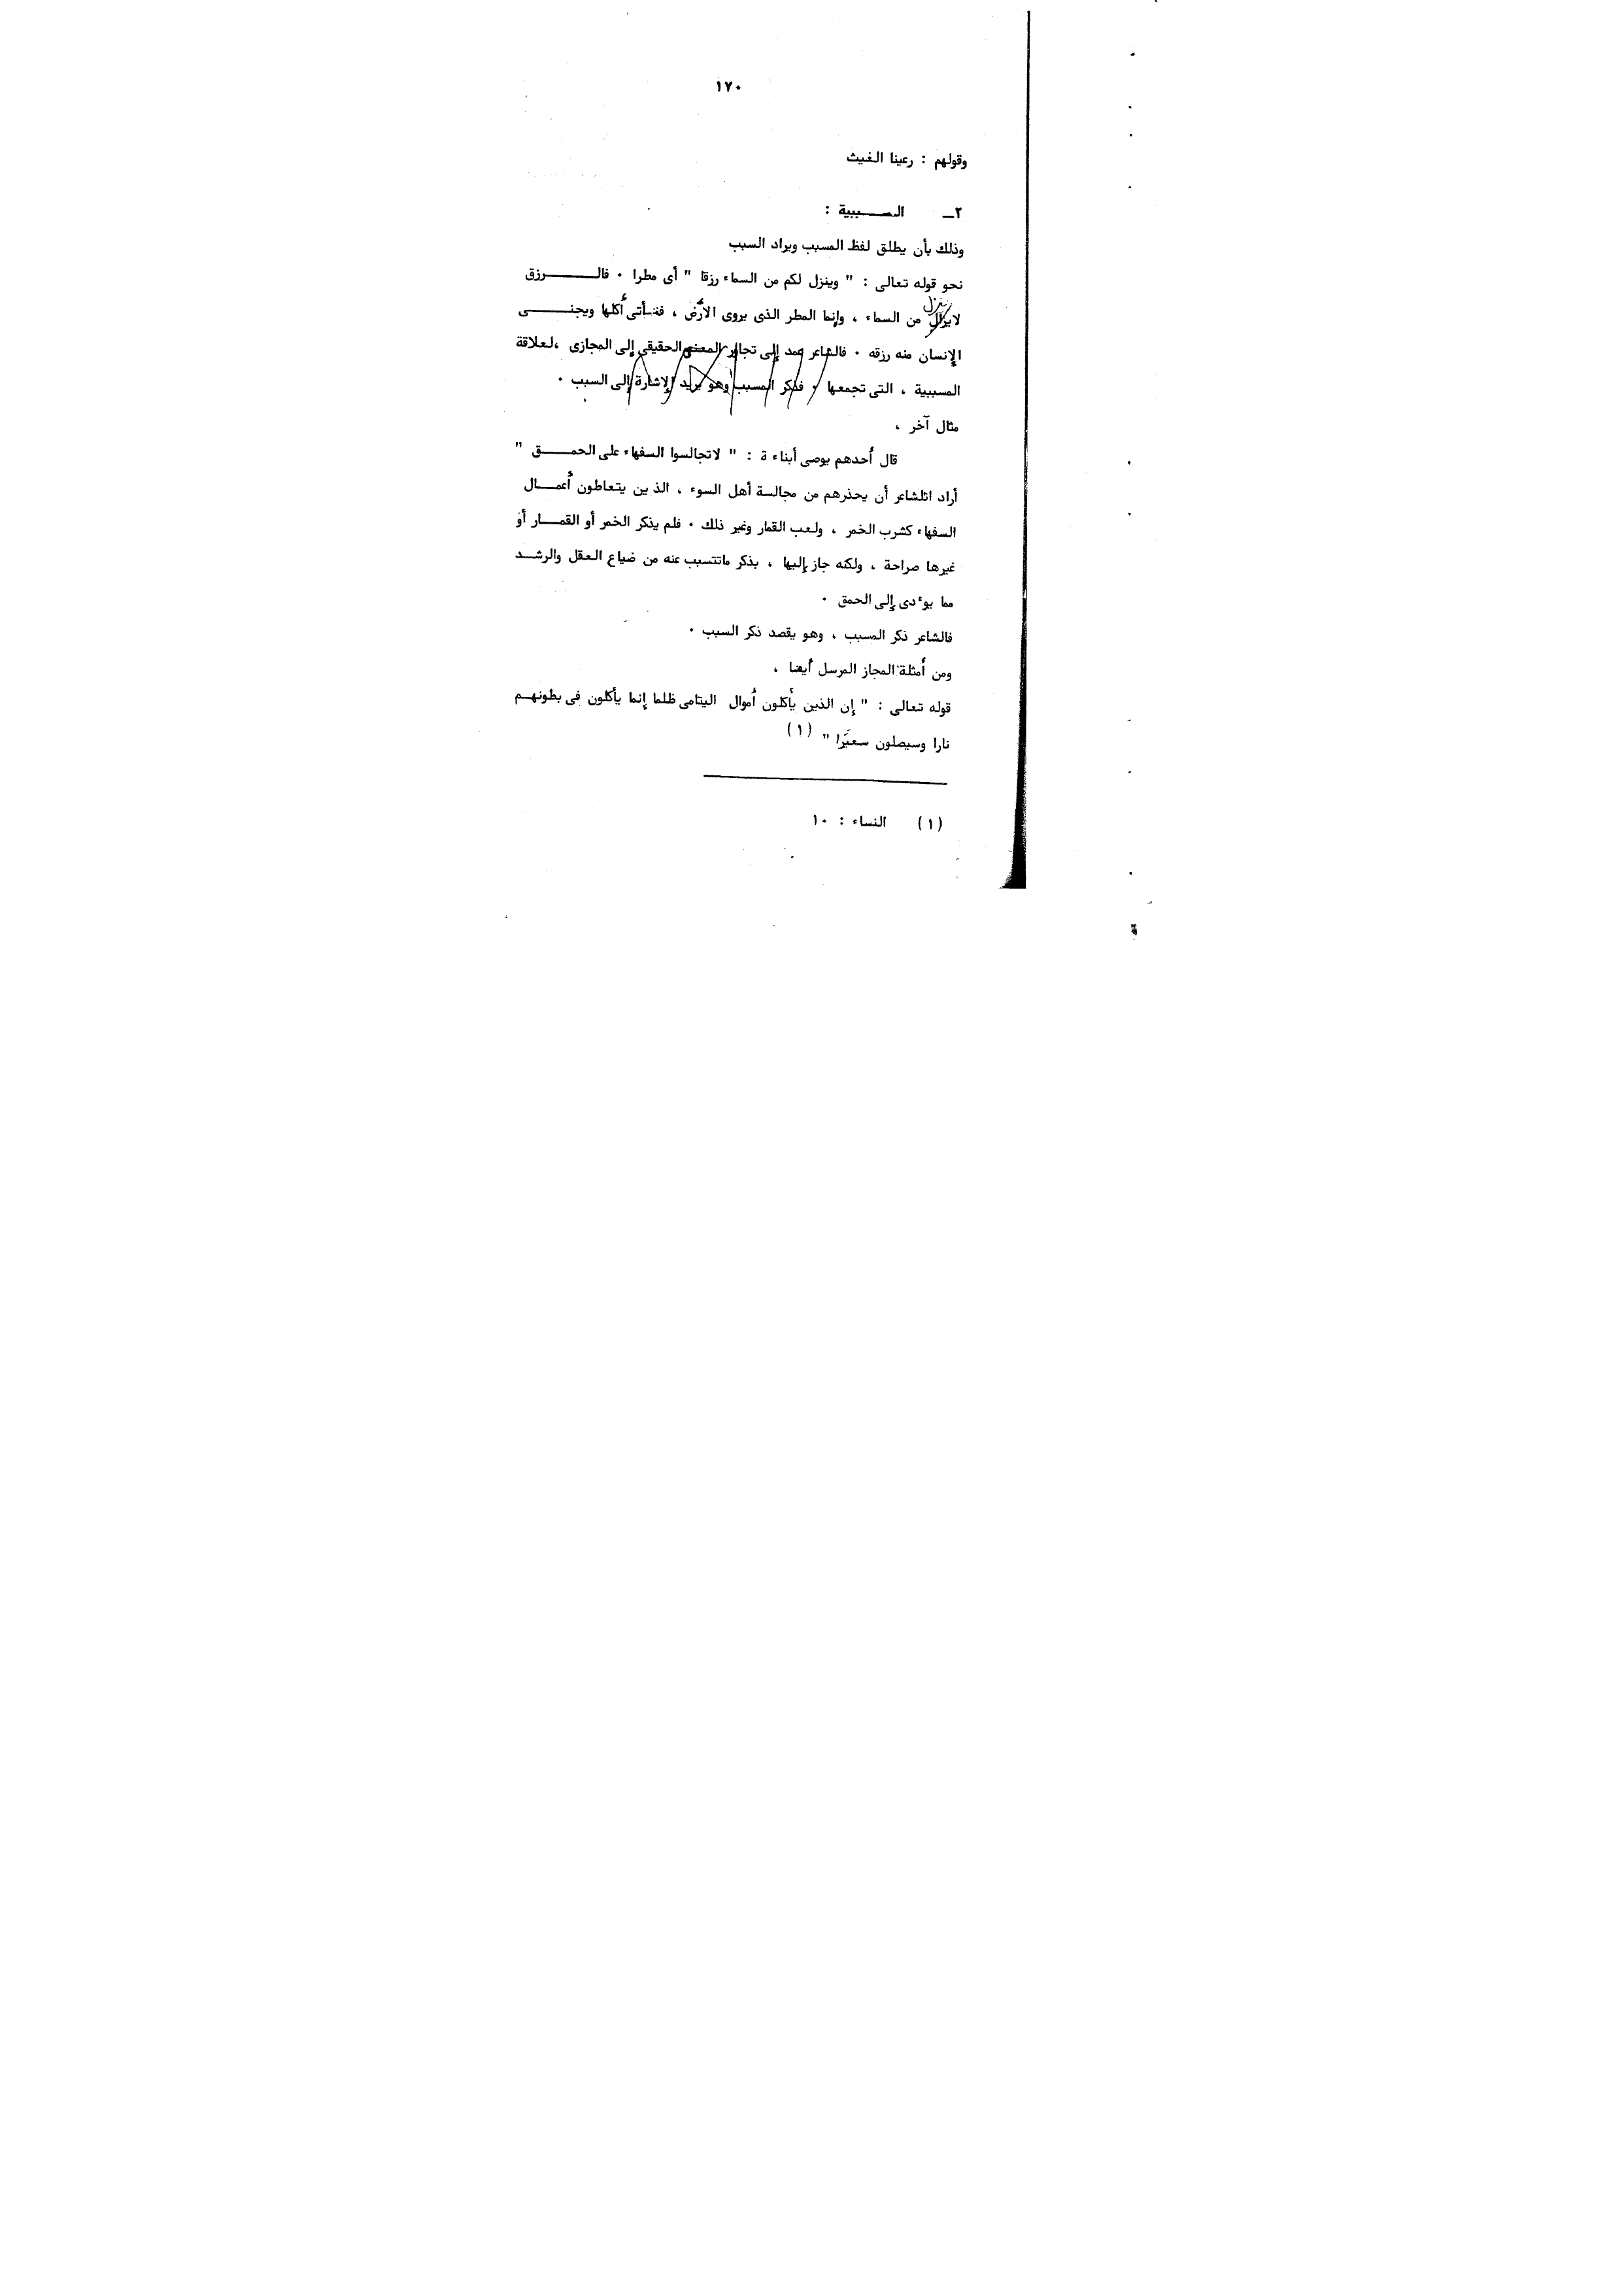 ١٧٠
وقولهم : رعينا الغيث
٢ــ المسببية :
وذلك بأن يطلق لفظ المسبب ويراد السبب
نحو قوله تعالى : " وينزل لكم من السماء رزقا " أى مطرا ٠ فالرزق
لا ينزل من السماء ، وإنما المطر الذى يروى الأرض ، فتأتى أكلها ويجنى
الإنسان منه رزقه ٠ فالشاعر عمد إلى تجاوز المعنى الحقيقى إلى المجازى ،لعلاقة
المسببية ، التى تجمعها ، فذكر المسبب وهو يريد الإشارة إلى السبب ٠
مثال آخر ،
قال أحدهم يوصى أبناء ة : " لاتجالسوا السفهاء على الحمق "
أراد الشاعر أن يحذرهم من مجالسة أهل السوء ، الذين يتعاطون أعمال
السفهاء كشرب الخمر ، ولعب القمار وغير ذلك ٠ فلم يذكر الخمر أو القمار أو
غيرها صراحة ، ولكنه جاز إليها ، بذكر ماتتسبب عنه من ضياع العقل والرشد
مما يوءدى إلى الحمق ٠
فالشاعر ذكر المسبب ، وهو يقصد ذكر السبب ٠
ومن أمثلة المجاز المرسل أيضا ،
قوله تعالى : " إن الذين يأكلون أموال اليتامى ظلما إنما يأكلون فى بطونهم
نارا وسيصلون سعيرا " (١)
(١) النساء : ١٠